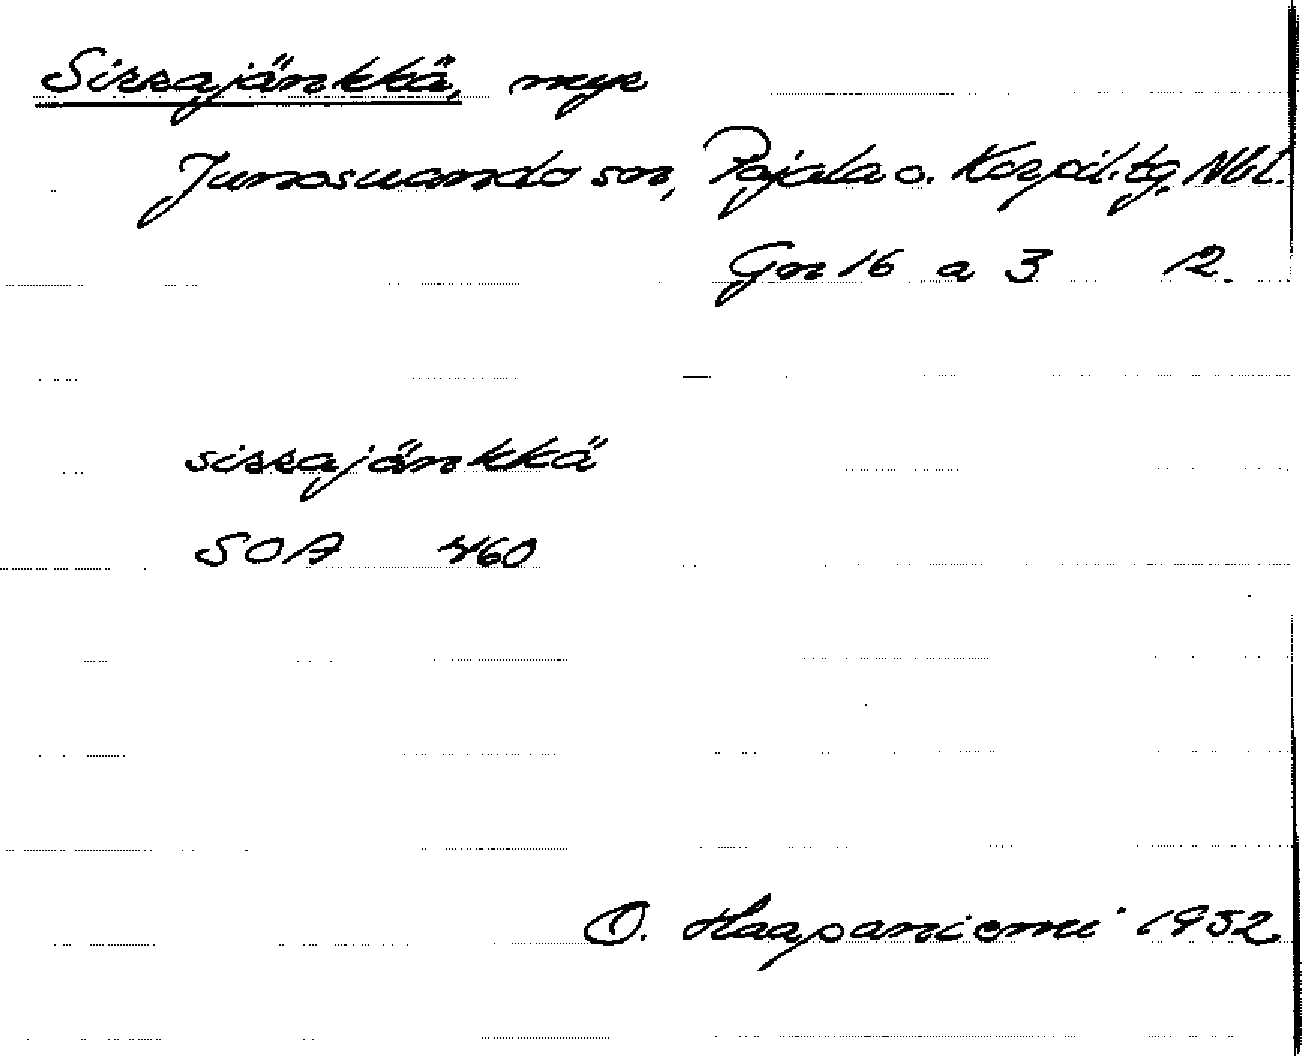 Sissajänkkä, myr
Junosuando sn, Pajala o. Korpil. tg, Nbl.
Gn 16 a 3 12.
sissajänkkä
SOA 460
O. Haapaniemi 1952